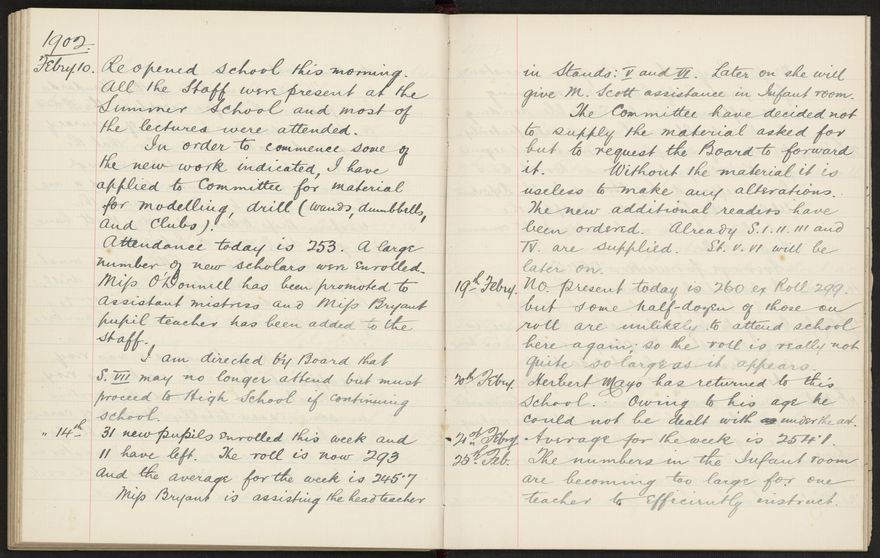 1902.
Febry 10. Re opened school this morning.
All the Staff were present at the
Summer School and most of
the lectures were attended.
In order to commence some of
the new work indicated, I have
applied to Committee for material
for modelling, drill (wands, dumbbells,
and clubs).
Attendance today is 253. A large
number of new scholars were enrolled.
Miss O'Donnell has been promoted to
assistant mistress and Miss Bryant
pupil teacher has been added to the
staff.
I am directed by Board that
S. VII may no longer attend but must
proceed to High School if continuing
school.
" 14th 31 new pupils enrolled this week and
11 have left. The roll is now 293
and the average for the week is 245.7
Miss Bryant is assisting the headteacher
in Stands: V and VI. Later on she will
give M. Scott assistance in Infant room.
The Committee have decided not
to supply the material asked for
but to request the Board to forward
it. Without the material it is
useless to make any alterations.
The new additional readers have
been ordered. Already S. I. II. III and
IV. are supplied. St. V. VI will be
later on.
19th Febry. No. present today is 260 ex Roll 299.
but some half-dozen of those on
roll are unlikely to attend school
here again; so the roll is really not
quite so large as it appears.
20th Febry. Herbert Mayo has returned to this
school. Owing to his age he
could not be dealt with under the act.
21st Febry Average for the week is 254.8.
25th Feb. The numbers in the Infant room
are becoming too large for one
teacher to efficiently instruct.